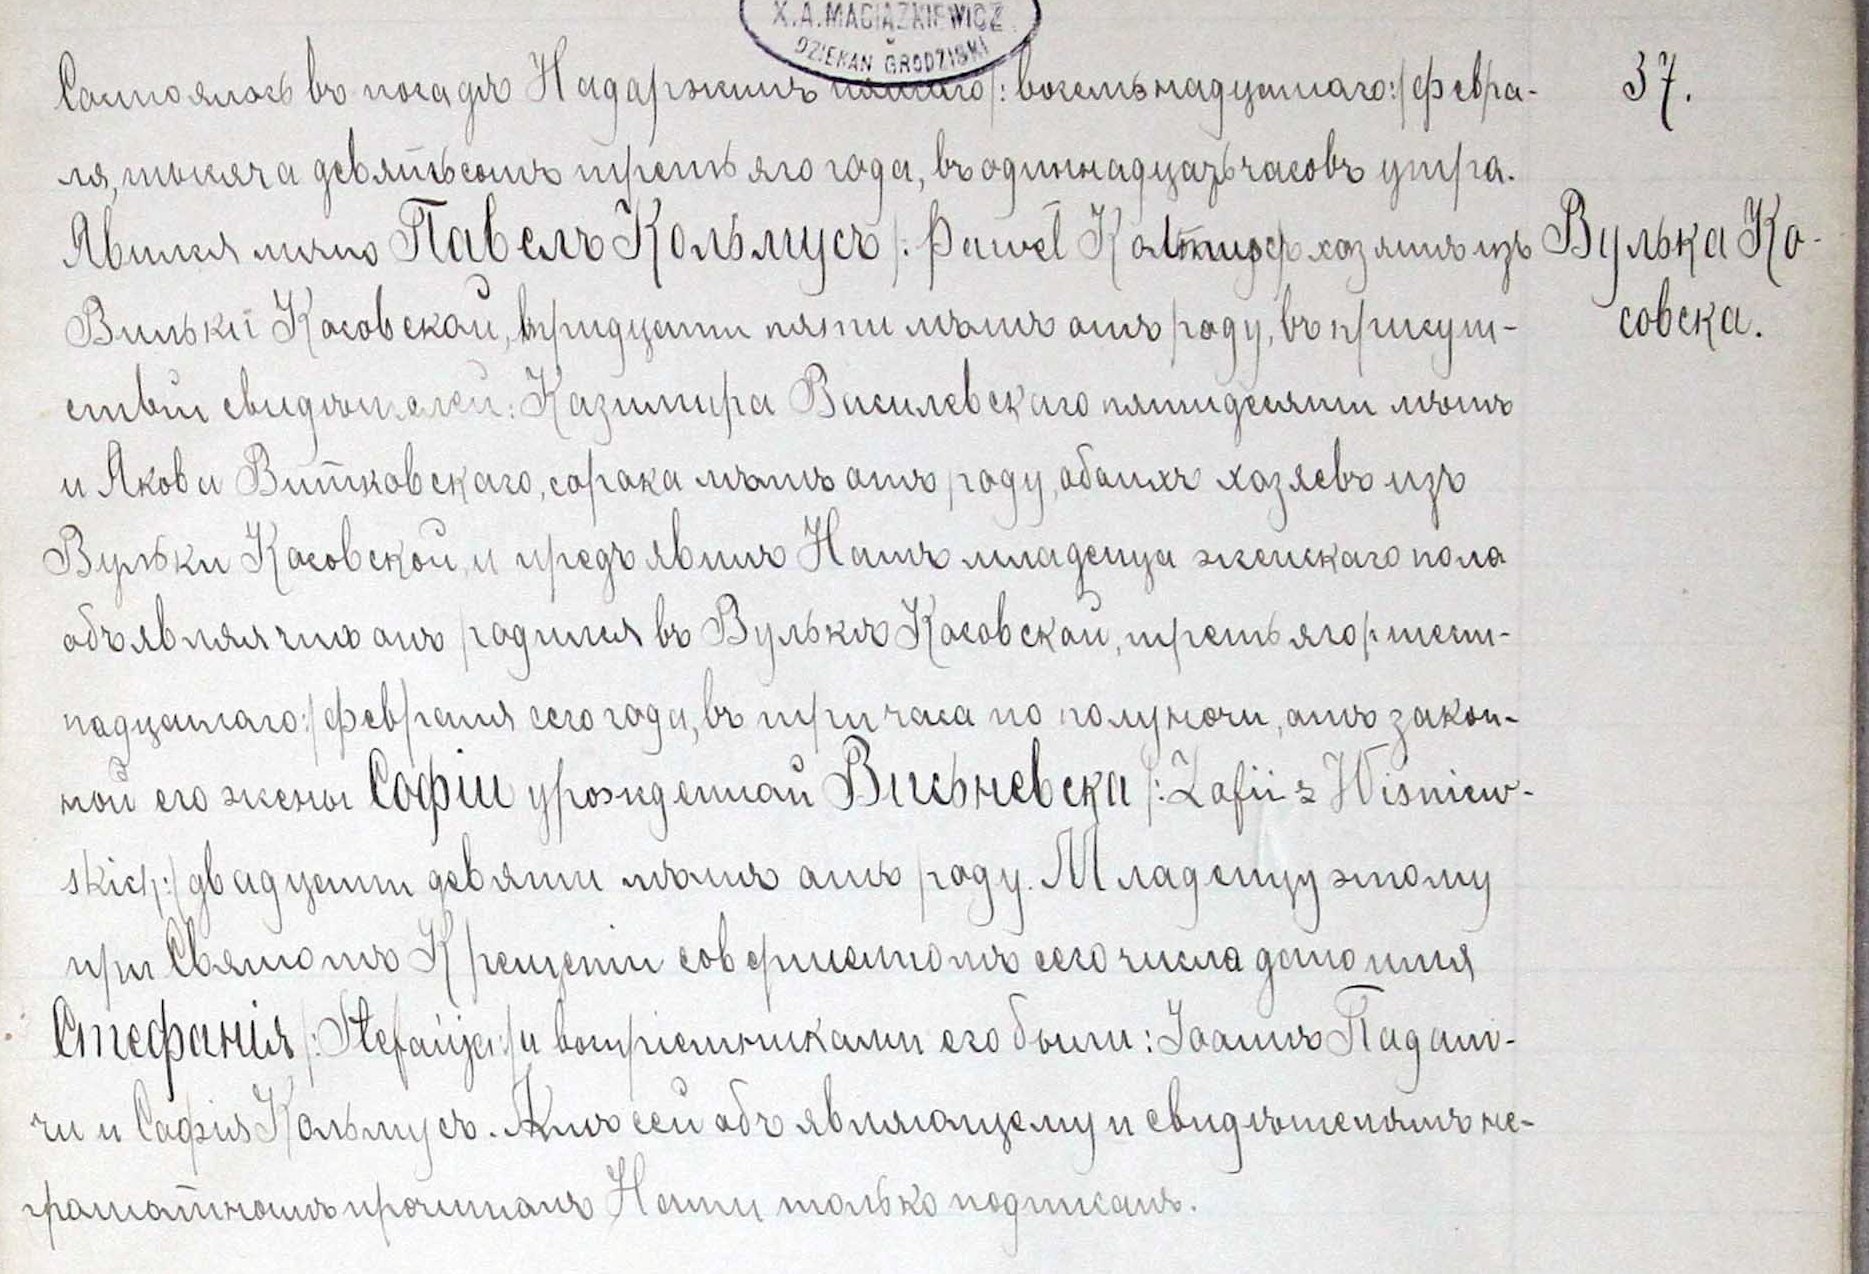 X. A. MACIĄŻKIEWICZ
DZIEKAN GRODZISKI
Состоялось въ посадѣ Надаржинѣ пятаго /: восемьнадцатаго:/ февра- 37.
ля, тысяча девятьсотъ третьяго года, въ одиннадцать часовъ утра.
Явился лично Павелъ Кольмусъ /: Paweł Kolmus хозяинъ изъ Вулька Ко-
Вильки Косовской, тридцати пяти лѣтъ отъ роду, въ присут- совска.
ствіи свидѣтелей: Казимира Василевскаго пятидесяти лѣтъ
и Якова Витковскаго, сорока лѣтъ отъ роду, обоихъ хозяевъ изъ
Вульки Косовской, и предъявилъ Намъ младенца женскаго пола
объявляя что онъ родился въ Вулькѣ Косовской, третьяго /: шест-
надцатаго:/ февраля сего года, въ три часа по полуночи, отъ закон-
ной его жены Софіи урожденной Висьневска /: Zofii z Wiśniew-
skich:/ двадцати девяти лѣтъ отъ роду. Младенцу этому
при Святомъ Крещеніи совершенномъ сего числа дано имя
Стефанія /: Stefanja:/ и воспріемниками его были: Іоаннъ
и Софія Кольмусъ. Актъ сей объявляющему и свидѣтелямъ не-
граматнымъ прочитанъ Нами только подписанъ.